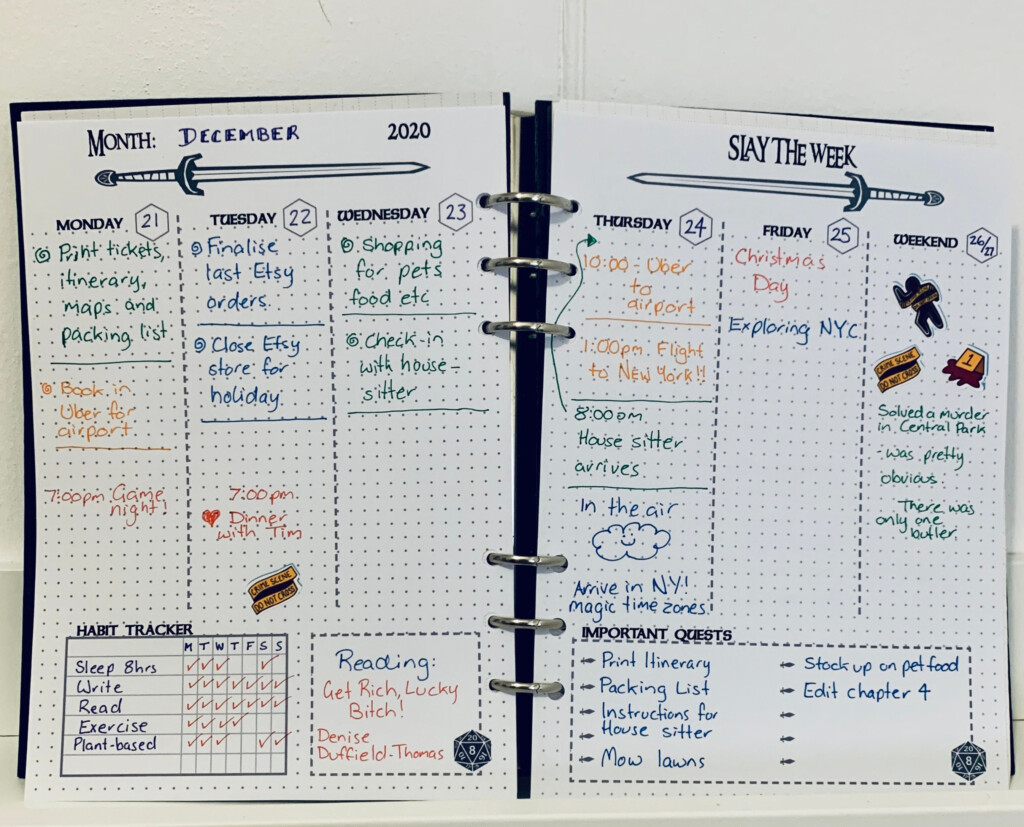 MONTH: DECEMBER 2020
MONDAY 21
Print tickets,
itinerary,
maps and
packing list
Book in
Uber for
airport
7:00pm Game
night!
TUESDAY 22
Finalise
last Etsy
orders.
Close Etsy
store for
holiday.
7:00pm.
Dinner
with Tim
CRIME SCENE
DO NOT CROSS
WEDNESDAY 23
Shopping
for pets
food etc
Check-in
with house-
sitter
HABIT TRACKER
M T W T F S S
Sleep 8hrs
Write
Read
Exercise
Plant-based
Reading:
Get Rich, Lucky
Bitch!
Denise
Duffield-Thomas
20
8
SLAY THE WEEK
THURSDAY 24
10:00 - Uber
to
airport
1:00pm. Flight
to New York!!
8:00pm
House sitter
arrives
In the air
Arrive in NY!
magic time zones.
FRIDAY 25
Christmas
Day
Exploring NYC
WEEKEND 26/27
CRIME SCENE
DO NOT CROSS
1
Solved a murder
in Central Park
- was pretty
obvious.
There was
only one
butler.
IMPORTANT QUESTS
Print Itinerary
Packing List
Instructions for
House sitter
Mow lawns
Stock up on pet food
Edit chapter 4
20
8